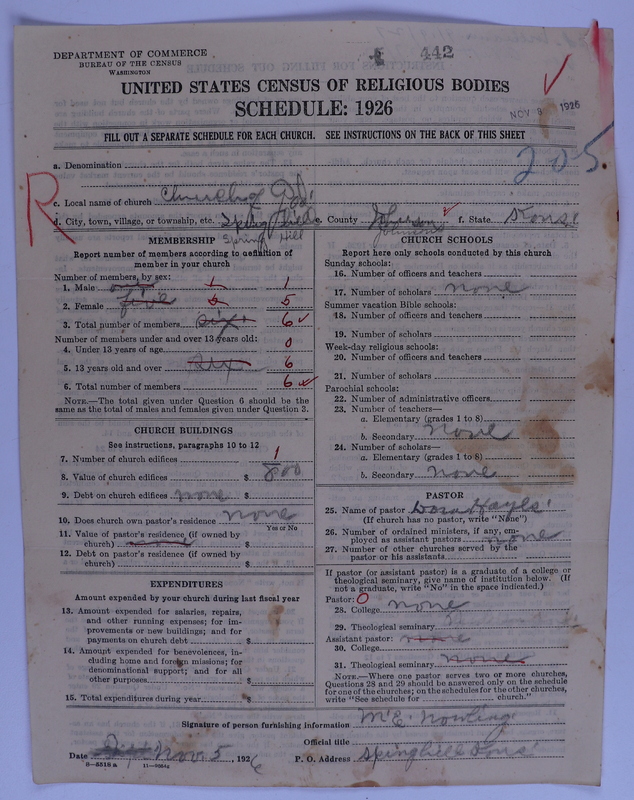 442
DEPARTMENT OF COMMERCE
BUREAU OF THE CENSUS
WASHINGTON
UNITED STATES CENSUS OF RELIGIOUS BODIES
SCHEDULE: 1926
NOV 8 1926
FILL OUT A SEPARATE SCHEDULE FOR EACH CHURCH. SEE INSTRUCTIONS ON THE BACK OF THIS SHEET
205
a. Denomination
R
c. Local name of church Church of God
d. City, town, village, or township, etc. Spring Hill e. County Johnson f. State Kans
Spring Hill Johnson
MEMBERSHIP
Report number of members according to definition of
member in your church
Number of members, by sex:
1. Male one 1 1
2. Female five 5 5
3. Total number of members six 6
Number of members under and over 13 years old:
4. Under 13 years of age 0
5. 13 years old and over six 6
6. Total number of members 6
NOTE.—The total given under Question 6 should be
same as the total of males and females given under Question 3.
CHURCH BUILDINGS
See instructions, paragraphs 10 to 12
7. Number of church edifices 1
8. Value of church edifices $ 800
9. Debt on church edifices none $
10. Does church own pastor's residence none
Yes or No
11. Value of pastor's residence (if owned by
church) none $
12. Debt on pastor's residence (if owned by
church) $
EXPENDITURES
Amount expended by your church during last fiscal year
13. Amount expended for salaries, repairs,
and other running expenses; for im-
provements or new buildings; and for
payments on church debt $
14. Amount expended for benevolences, in-
cluding home and foreign missions; for
denominational support; and for all
other purposes $
15. Total expenditures during year $
CHURCH SCHOOLS
Report here only schools conducted by this church
Sunday schools:
16. Number of officers and teachers
17. Number of scholars none
Summer vacation Bible schools:
18. Number of officers and teachers
19. Number of scholars
Week-day religious schools:
20. Number of officers and teachers
21. Number of scholars
Parochial schools:
22. Number of administrative officers
23. Number of teachers—
a. Elementary (grades 1 to 8)
b. Secondary none
24. Number of scholars—
a. Elementary (grades 1 to 8)
b. Secondary none
PASTOR
25. Name of pastor Hayes
(If church has no pastor, write "None")
26. Number of ordained ministers, if any, em-
ployed as assistant pastors none
27. Number of other churches served by the
pastor or his assistants
If pastor (or assistant pastor) is a graduate of a college or
theological seminary, give name of institution below. (If
not a graduate, write "No" in the space indicated.)
Pastor: 0
28. College none
29. Theological seminary
Assistant pastor: none
30. College
31. Theological seminary none
NOTE.—Where one pastor serves two or more churches,
Questions 28 and 29 should be answered only on the schedule
for one of the churches; on the schedules for the other churches,
write "See schedule for church."
Signature of person furnishing information M. E. Nowling
Official title
Date Sept Nov. 5, 1926 P. O. Address Springhill Kans
8-5518 a